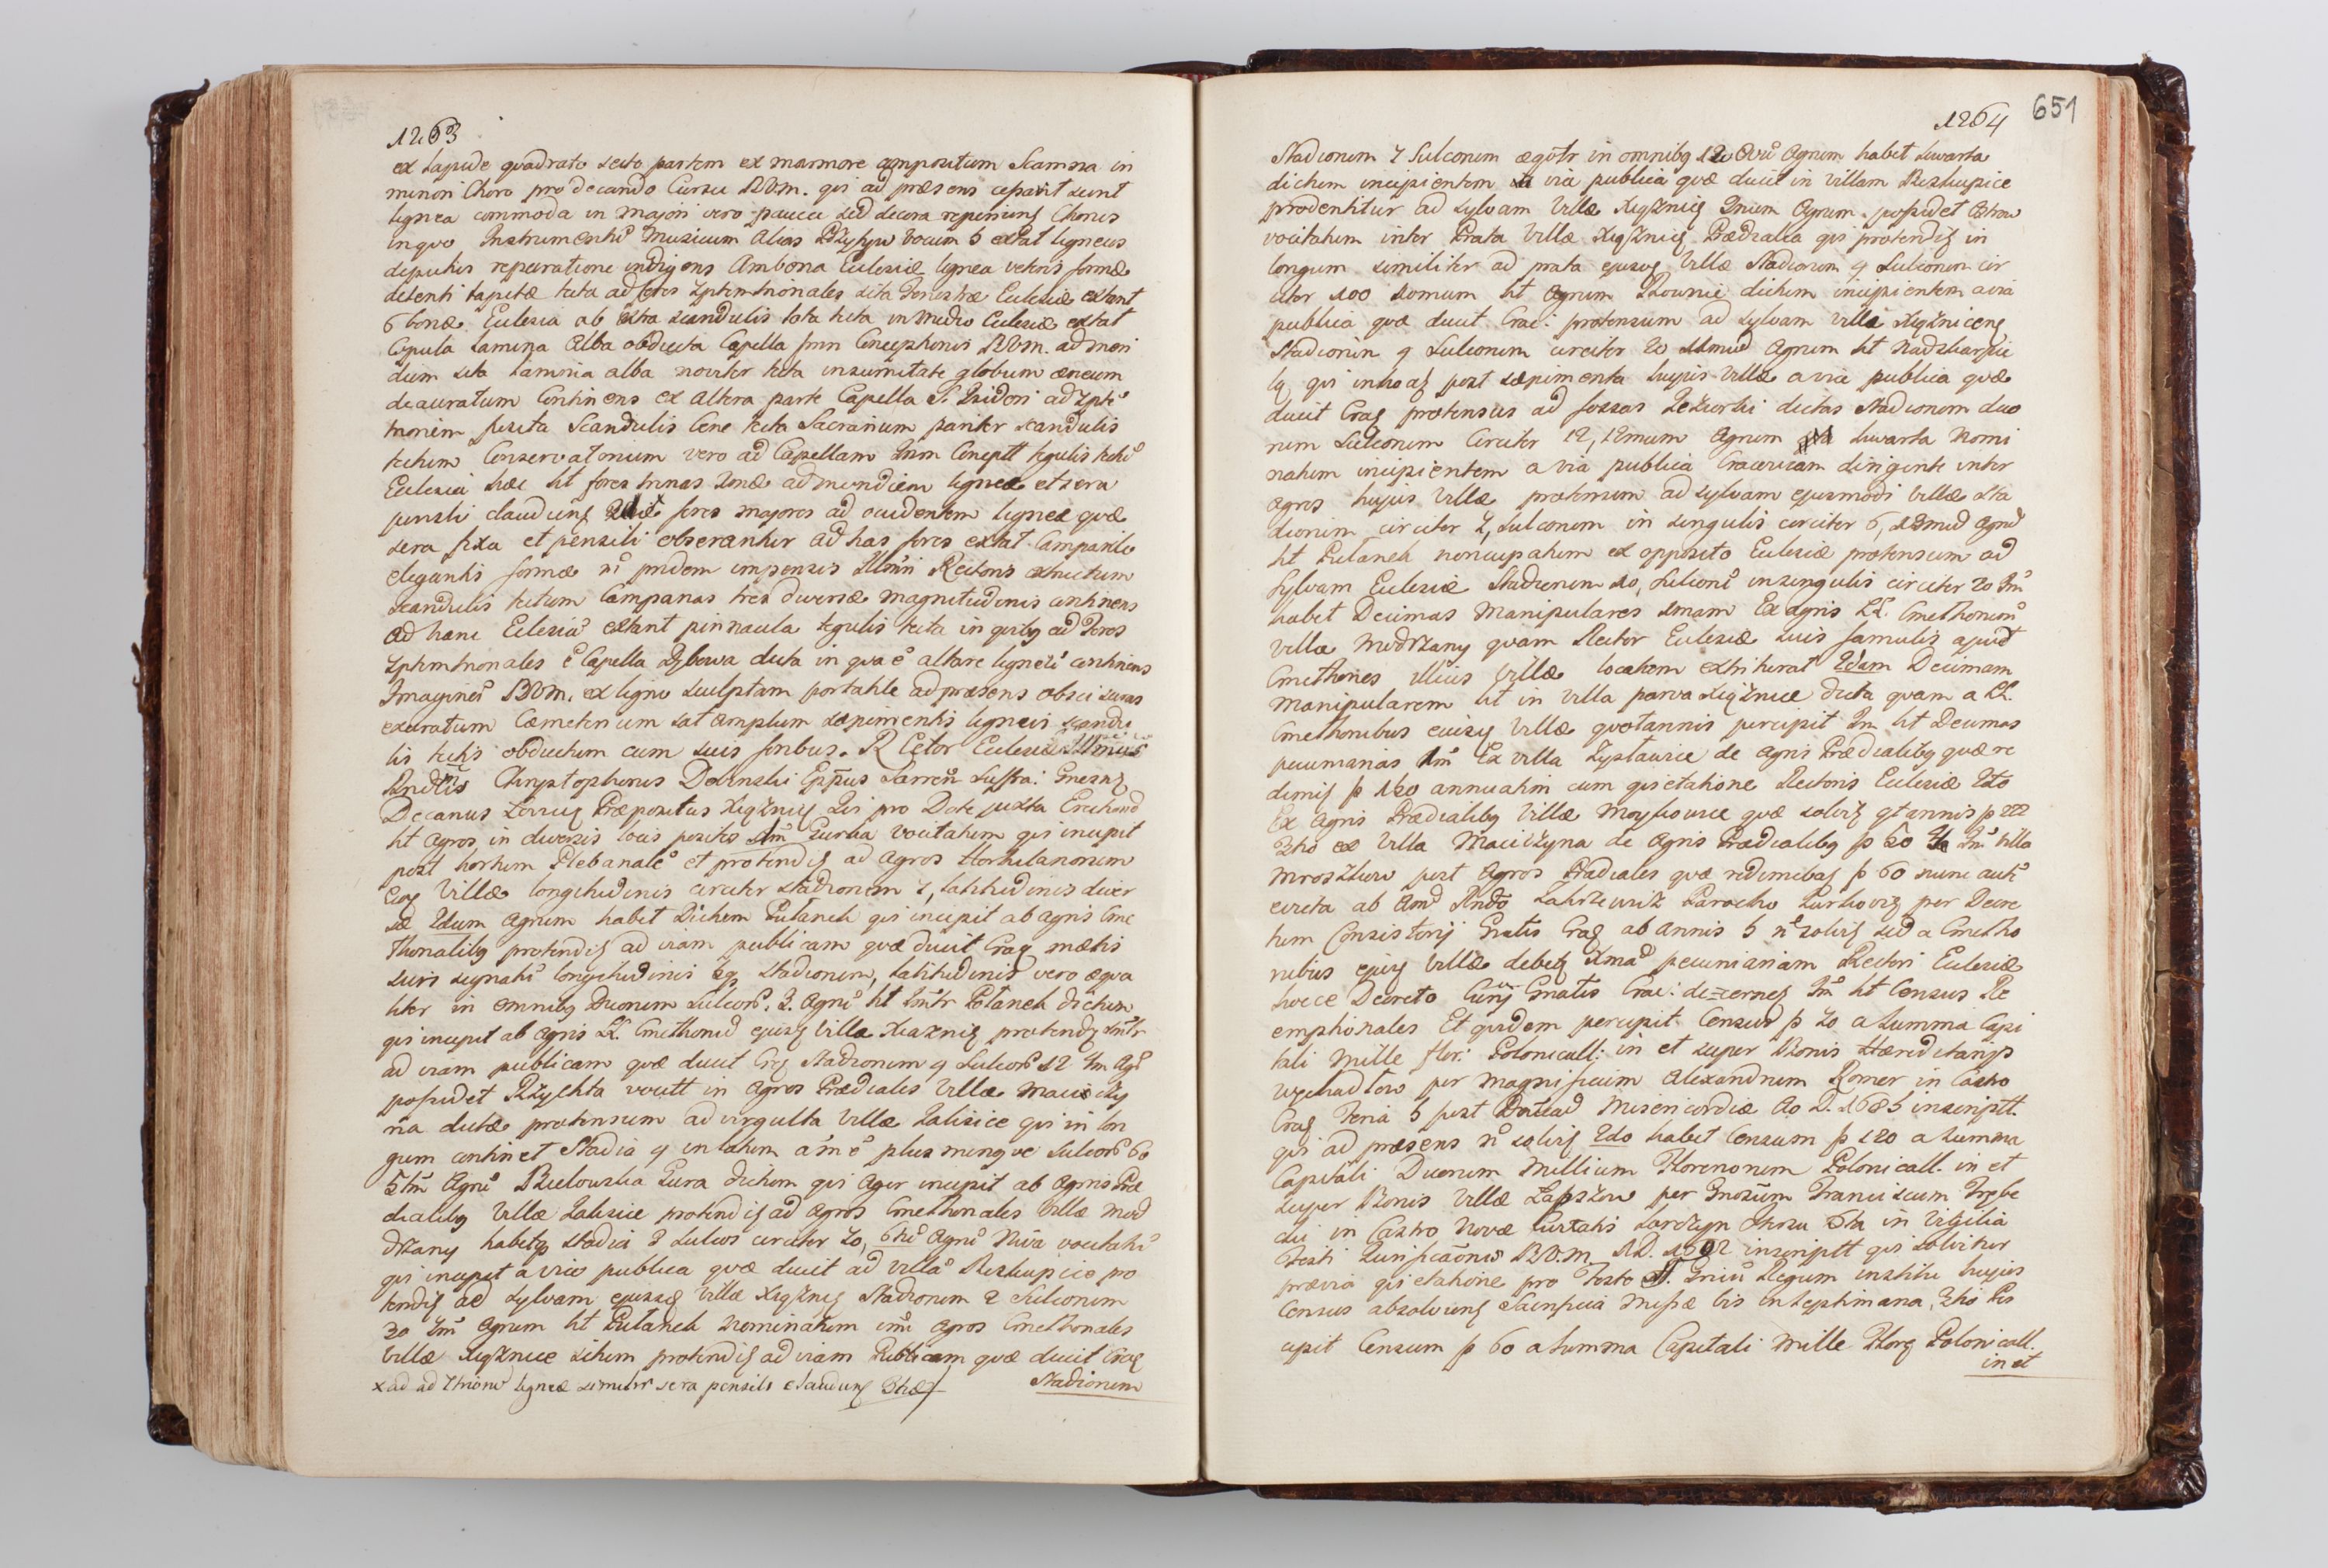 1263
ex lapide quadrato secto partem ex marmore compositum Scamna in
minori Choro pro decando Cursu BVM. qui ad præsens cessavit sunt
lignea commoda in majori vero paucæ sed decora reperiung Chorus
in quo Instrumentũ Muzicum alias Pozytyw vocum 5 extat ligneus
depictus reparatione indigens Ambona Ecclesiæ lignea veteris formæ
tapetæ tecta ad fores 7ptemtrionales sita Fenestræ Ecclesiæ extant
6 bonæ Ecclesia ab extra scandulis tota tecta in medio Ecclesiæ extat
Copula lamina alba obducta Capella Conceptionis BVM. ad meri
diem sita lamina alba noviter tecta in sumitate globum æneum
deauratum Continens ex altera parte Capella S. Isidori ad 7pte
trionem posita Scandulis bene tecta Sacrarium pariter scandulis
tectum Conservatorium vero ad Capellam Concept tegulis tectũ
Ecclesia hæc ht fores trinas 1mæ ad meridiem ligneæ et sera
pensili claudung fores majores ad occidentem ligneæ quæ
sera fixa et pensili obserantur ad has fores extat Campanile
elegantis formæ ni pridem impensis Illmi Rectoris extructum
scandulis tectum Campanas tres diversæ magnitudinis continens
ad hanc Eclesiã extant pinnacula tegulis tecta in quibg ad Fores
7ptemtrionales ẽ Capella dicta in qua ẽ altare ligneũ continens
Imaginẽ BVM. ex ligno sculptam portatile ad præsens
exaratum Cæmeterium sat amplum sæpimentis ligneis scandu
lis tectis obductum cum suis foribus. R Ector Ecclesiæ Illmus
Rndĩs Chrystophorus Doinski Eppus Suffra: Gnesng
Decanus Præpositus Xiążnicg Qui pro Dote juxta
ht agros in diversis locis positos 1mũ vocitatum qui incipit
post hortum Plebanalẽ et protendig ad agros Hortulanorum
Villæ longitudinis circiter stadiorum 7, latitudinis diver
sæ 2dum agrum habet Dictum Putanek qui incipit ab agris Cme
thonalibg protendig ad viam publicam quæ ducit Crag metis
suis signatũ longitudinis stadiorum, latitudinis vero æqua
liter in omnibg Duorum Sulcorũ. 3. agrũ ht Putanek dictum
qui incipit ab agris LL. Cmethonũ ejusg Villæ Xiaznig protendig
ad viam publicam quæ ducit Crg Stadiorum 9 Sulcorũ 12 4m Agũ
possidet Pzychta vocitt in agros Prædiales Villæ Maciczy
na dictæ protensum ad virgulta Villæ Zalisice qui in lon
gum continet Stadia 9 in latum a'm ẽ plus minqve Sulcorũ 60
5tũ Agrũ Bielowska Gura dictum qui Ager incipit ab Agris Præ
dialibg Villæ Zalisice protendig ad agros Cmethonales Villæ Mod
drzany habetq stadia 3 sulcos circiter 20, 6tũ Agrũ Niva vocitatũ
qui incipit a via publica quæ ducit ad villã Biskupice pro
tendig ad sylvam ejusdg Villæ Xiążnig Stadiorum 2 Sulcorum
30 7mũ agrum ht Putanek Nominatum inter agros Cmethonales
Villæ Xiążnice situm protendig ad viam Publicam quæ ducit Crag
x ad ad 7trionẽ ligneæ similitr sera pensili claudung 3tiæ
Stadiorum
1264
651
Stadiorum 7 Sulcorum ægũtr in omnibg 12 8vũ Agrum habet Zwarta
dictum incipientem a via publica quæ ducit in villam Biskupice
protenditur ad sylvam Villæ Xiążnicg 9num Agrum possidet Ostrow
vocitatum inter Prata Villæ Xiążnicg Prædialia qui protendig in
longum similiter ad prata ejusdg Villæ Stadiorum 9 Sulcorum cir
citer 100 10mum ht Agrum Rownie dictum incipientem a via
publica quæ ducit Crac: protensum ad sylvam Villæ Xiążniceng
Stadiorũm 9 Sulcorum circiter 20 11mũ Agrum ht Nadskarpie
qui inhoag post sæpimenta hujus Villæ a via publica quæ
ducit Crag protensus ad fossas Jeziorki dictas Stadiorum duo
rum Sulcorum Circiter 12, 12mum Agrum Zwarta Nomi
natum incipientem a via publica Cracoviam dirigente inter
agros hujus Villæ protensum ad sylvam ejusmodi Villæ Sta
diorum circiter 7, Sulcorum in singulis circiter 6, 13mũ Agrũ
ht Putanek noncupatum ex opposito Ecclesiæ protensum ad
Sylvam Ecclesiæ Stadiorum 10, Sulcorũ in singulis circiter 20 Imo
habet Decimas Manipulares 1mam Ex agris LL. Cmethonum
Villæ Modrzany quam Rector Ecclesiæ suis famulis apud
Cmethones illius Villæ locatam extriturat 2dam Decimam
Manipularem ht in Villa parva Xiążnice dicta quam a LL.
Cmethonibus ejusdg Villæ quotannis percipit Im ht Decimas
pecuniarias 1mo Ex villa Zystawice de agris Prædialibg quæ re
dimig þ 120 annuatim cum quietatione Rectoris Ecclesiæ 2do
Ex Agris Prædialibg Villæ Moyskowice quæ solvig qtannis þ 22
3tio ex Villa Maciczyna de Agris Prædialibg þ 50 Villa
Mroszkow post agros Prædiales quæ redimebag þ 60 nunc autẽ
erecta ab Amõ Rndo Zakrzewsk Parocho per Decre
tum Consistorij Gnalis Crag ab annis 5 nõ solvig sed a Cmetho
nibus ejusg Villæ debetg Xmaũ pecuniariam Rectori Ecclesiæ
hocce Decreto Cũrij Gnalis Crac: decerneg Im ht Census Re
emptionales Et quidem percipit Censum þ 70 a Summa Capi
tali Mille flor: Polonicall: in et super Bonis Hæreditariis
per Magnificum Alexandrum Romer in Castro
Crag Feria 5 post Dõicã Misericordiæ Ao D. 1685 inscriptt.
qui ad præsens nõ solvig 2do habet Censum þ 120 a summa
Capitali Duorum Millium Florenorum Polonicall. in et
super Bonis Villæ Łapszow per Gnosũm Franciscum Trębe
cki in Castro Novæ Civitatis Korczyn Feria 5ta in Vigilia
Festi Purificaõnis BVM. AD. inscriptt qui solvitur
prævia quietatione pro Festo SS. Triũ Regum institu hujus
Census absolvung Sacrificia Missæ bis in Septimana, 3tio Per
cipit Censum þ 60 a Summa Capitali Mille Florg Polonicall.
in et